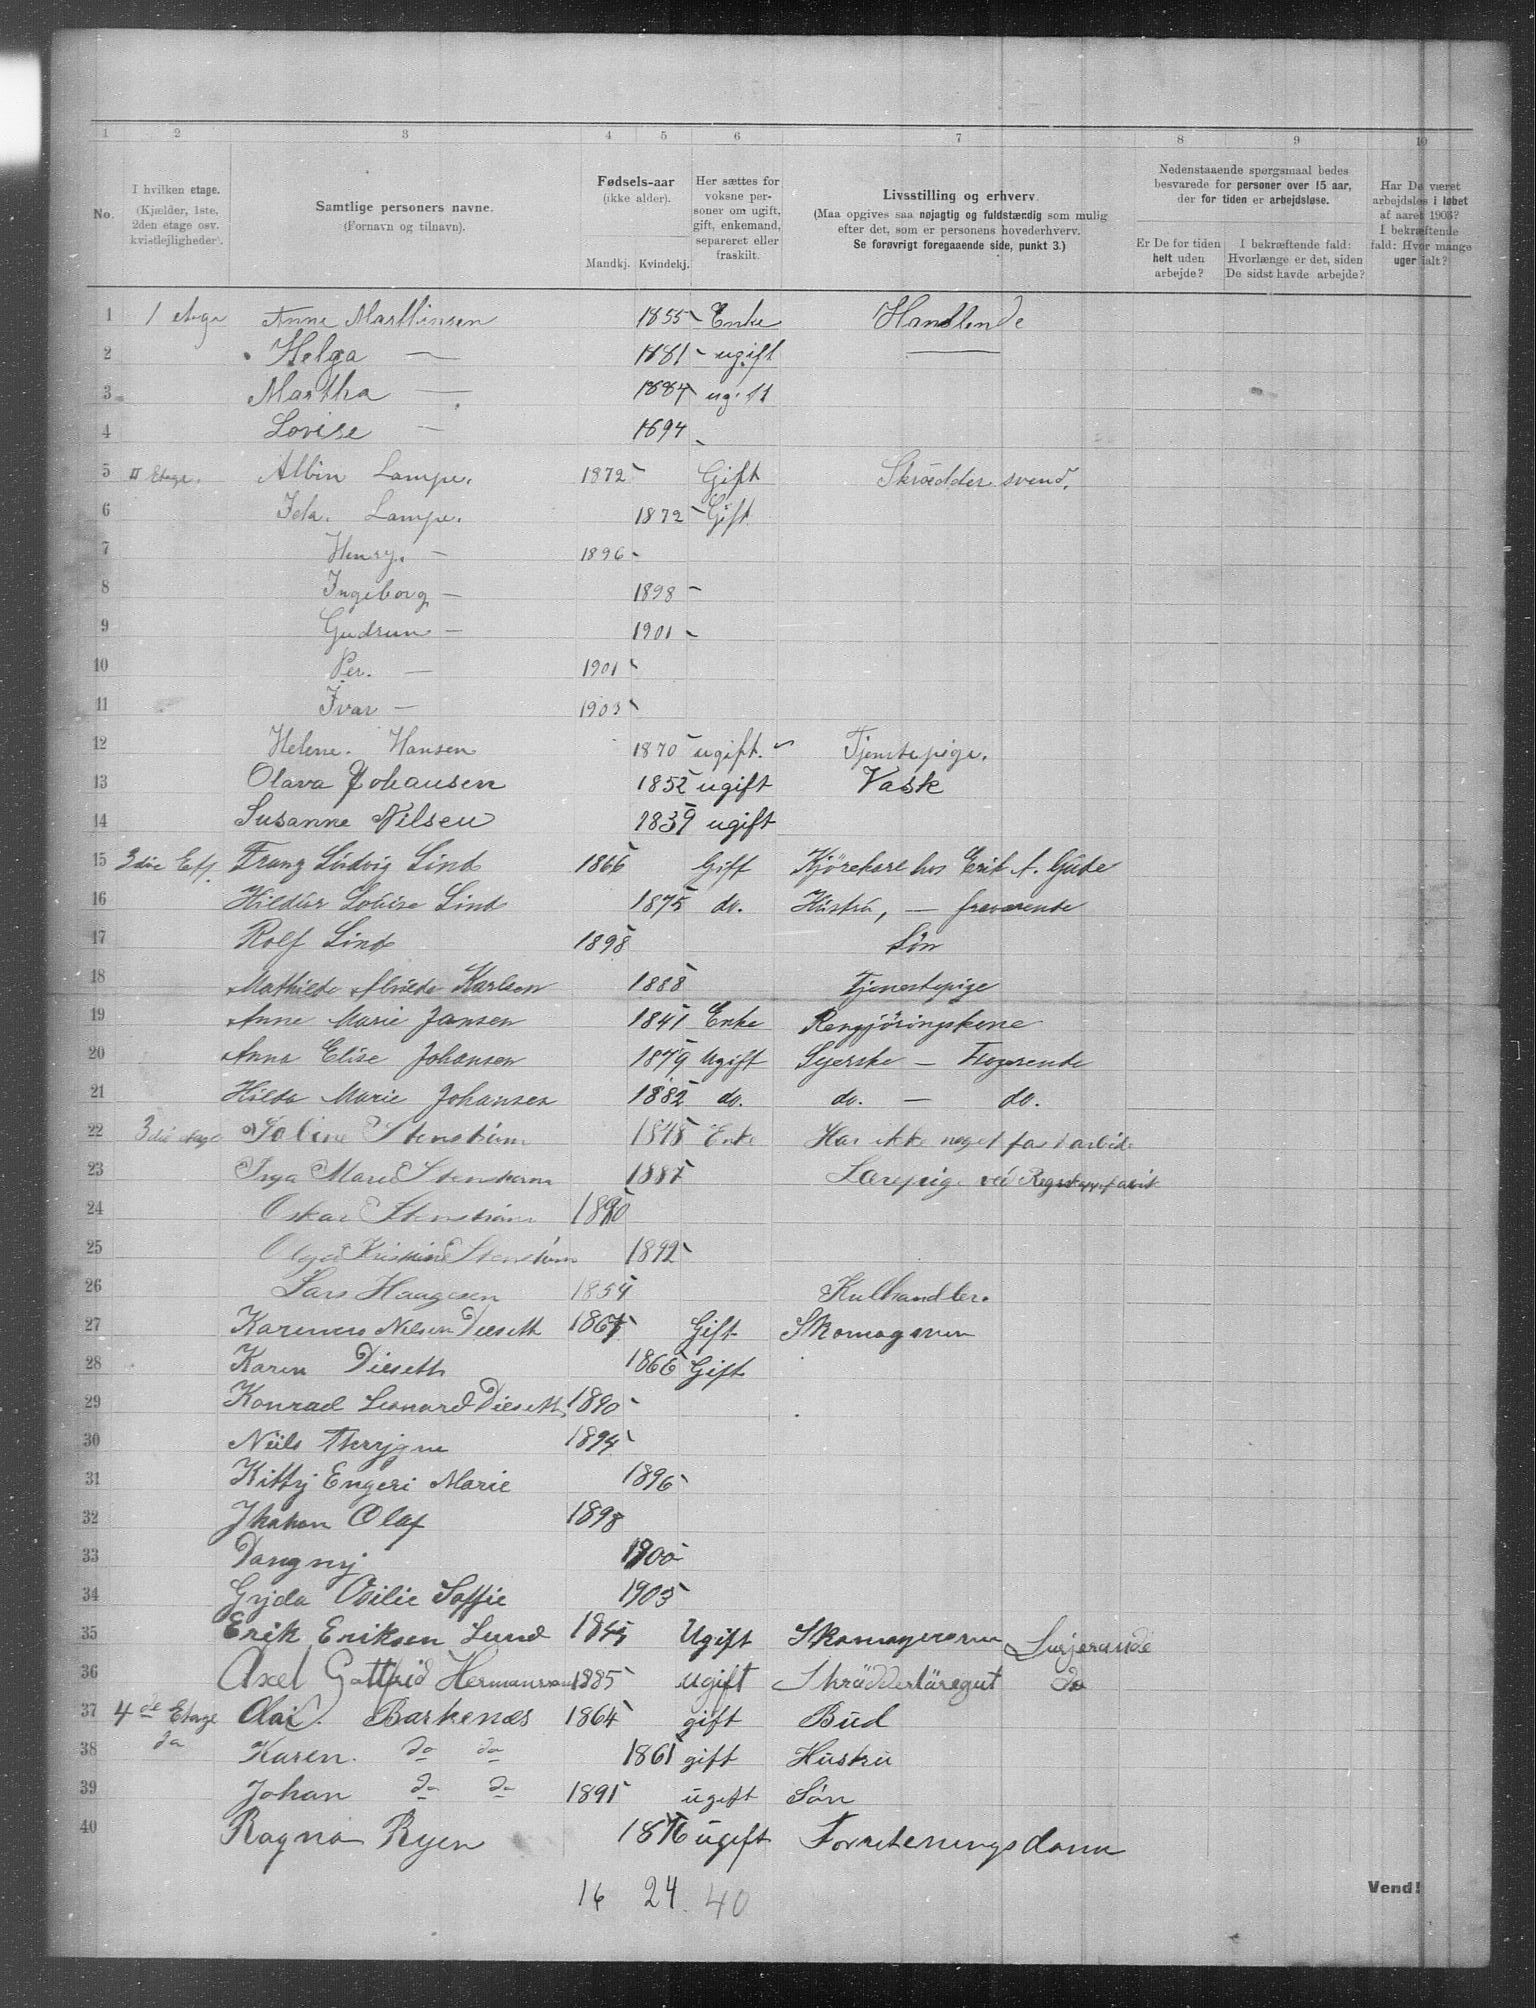 1 2 3 4 5 6 7 8 9 10
No.
I hvilken etage.
(Kjælder, 1ste, 2den etage osv. kvistlejligheder).
Samtlige personers navne.
(Fornavn og tilnavn).
Fødsels-aar
(ikke alder).
Mandkj. Kvindekj.
Her sættes for voksne personer om ugift, gift, enkemand, separeret eller fraskilt.
Livsstilling og erhverv.
(Maa opgives saa nøjagtig og fuldstændig som mulig efter det, som er personens hovederhverv.
Se forøvrigt foregaaende side, punkt 3.)
Nedenstaaende spørgsmaal bedes besvarede for personer over 15 aar, der for tiden er arbejdsløse.
Er De for tiden helt uden arbejde?
I bekræftende fald: Hvorlænge er det, siden De sidst havde arbejde?
Har De været arbejdsløs i løbet af aaret 1903? I bekræftende fald: Hvor mange uger ialt?
1 1 etage Anne Marthinsen 1855 Enke Handlende
2 Helga — 1881 ugift —
3 Martha — 1884 ugift
4 Lovise — 1894
5 II Etage. Albin Lampe. 1872 Gift Skrædder svend.
6 Ida. Lampe. 1872 Gift
7 Henry. — 1896
8 Ingeborg — 1898
9 Gudrun — 1901
10 Per. — 1901
11 Ivar — 1903
12 Helene. Hansen 1870 ugift. Tjenstepige.
13 Olava Johansen 1852 ugift Vask
14 Susanne Nilsen 1839 ugift
15 3die Etg. Franz Ludvig Lind 1866 Gift Kjørekarl hos Erik A. Gude
16 Hildur Lovise Lind 1875 do. Hustru, —
17 Rolf Lind 1898 Søn
18 Mathilde Alvilde Karlsen 1888 Tjenestepige
19 Anne Marie Jansen 1841 Enke Rengjøringskone
20 Anna Elise Johansen 1879 Ugift Syerske —
21 Hilda Marie Johansen 1882 do. do. — do.
22 3die etage Stenstrøm 1848 Enke Har ikke noget fast arbide
23 Inga Marie Stenstrøm 1887 Lærepige ved
24 Oskar Stenstrøm 1890
25 Kristine Stenstrøm 1892
26 Lars Haagesen 1854 Kulhandler.
27 Karenus Nilsen Dieseth 1867 Gift Skomagersven
28 Karen Dieseth 1866 Gift
29 Konrad Leonard Dieseth 1890
30 Niils Therygve 1894
31 Kitty Engeri Marie 1896
32 Olaf 1898
33 Dangny 1900
34 Gyda Osilie Soffie 1903
35 Erik Eriksen Lund Ugift Skomagersven Losjerande
36 Axel Gottfrid Hermansson 1885 ugift Skräddarläregut do
37 4de Etage Olai. Barkenæs 1864 gift Bud
38 do Karen. do do 1861 gift Hustru
39 Johan do do 1891 ugift Søn
40 Ragna Ryen 1876 ugift Forretningsdame
16 24 40
Vend!